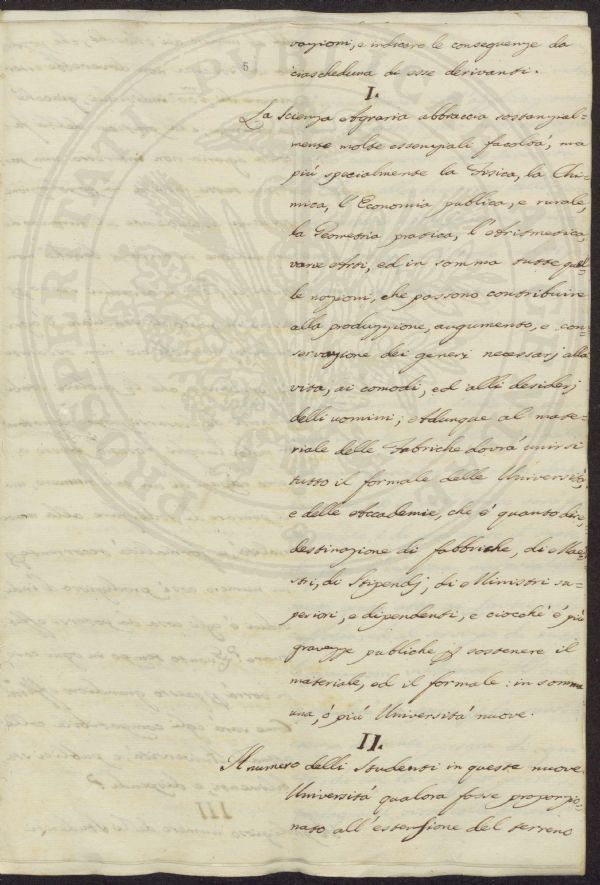 vazioni, e indicare le conseguenze da
5
ciascheduna di esse derivanti.
I.
La Scienza Agraria abbraccia sostanzial=
mente molte essenziali facoltà, ma
più specialmente la Fisica, la Chi=
mica, l'Economia publica, e rurale,
la Geometria pratica, l'Aritmetica,
varie Arti, ed in somma tutte quel=
le nozioni, che possono contribuire
alla produzzione, augumento, e con=
servazione dei generi necessarj alla
vita, ai comodi, ed alli desiderj
delli uomini; Adunque al mate=
riale delle Fabriche dovrà unirsi
tutto il formale delle Università,
e delle Accademie, che è quanto dire,
destinazione di fabbriche, di Mae=
stri, di Stipendj, di Ministri su=
periori, e dipendenti, e ciocché è più
gravezze publiche p sostenere il
materiale, ed il formale: in somma
una, ò più Università nuove.
II.
Il numero delli Studenti in queste nuove
Università qualora fosse proporzio=
nato all'estensione del terreno
PROSPERITATI PUBLICAE